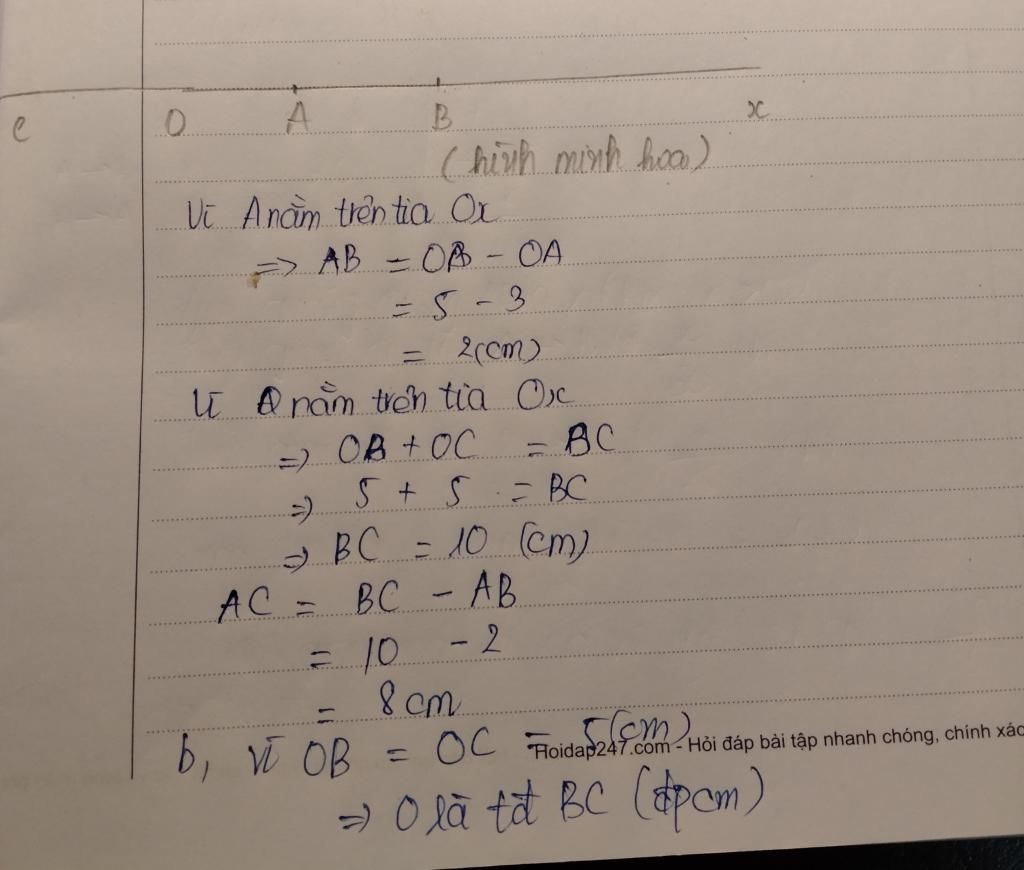 C O A B x
(hình minh hoạ)
Vì A nằm trên tia Ox
=> AB = OB - OA
= 5 - 3
= 2(cm)
Vì O nằm trên tia Ox
=> OB + OC = BC
=> 5 + 5 = BC
=> BC = 10 (cm)
AC = BC - AB
= 10 - 2
= 8cm
b, vì OB = OC = 5(cm)
Hoidap247.com - Hỏi đáp bài tập nhanh chóng, chính xác
=> O là tđ BC (đpcm)